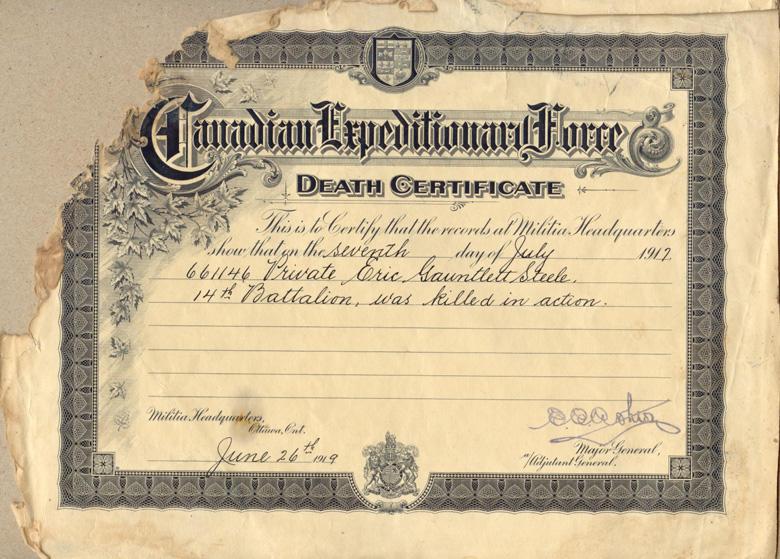 Canadian Expeditionary Force
DEATH CERTIFICATE
This is to Certify that the records at Militia Headquarters
show that on the seventh day of July 1917.
661146 Private Eric Gauntlett Steele.
14th Battalion, was killed in action.
Militia Headquarters,
Ottawa, Ont.
June 26th 1919
Major General,
Adjutant General.